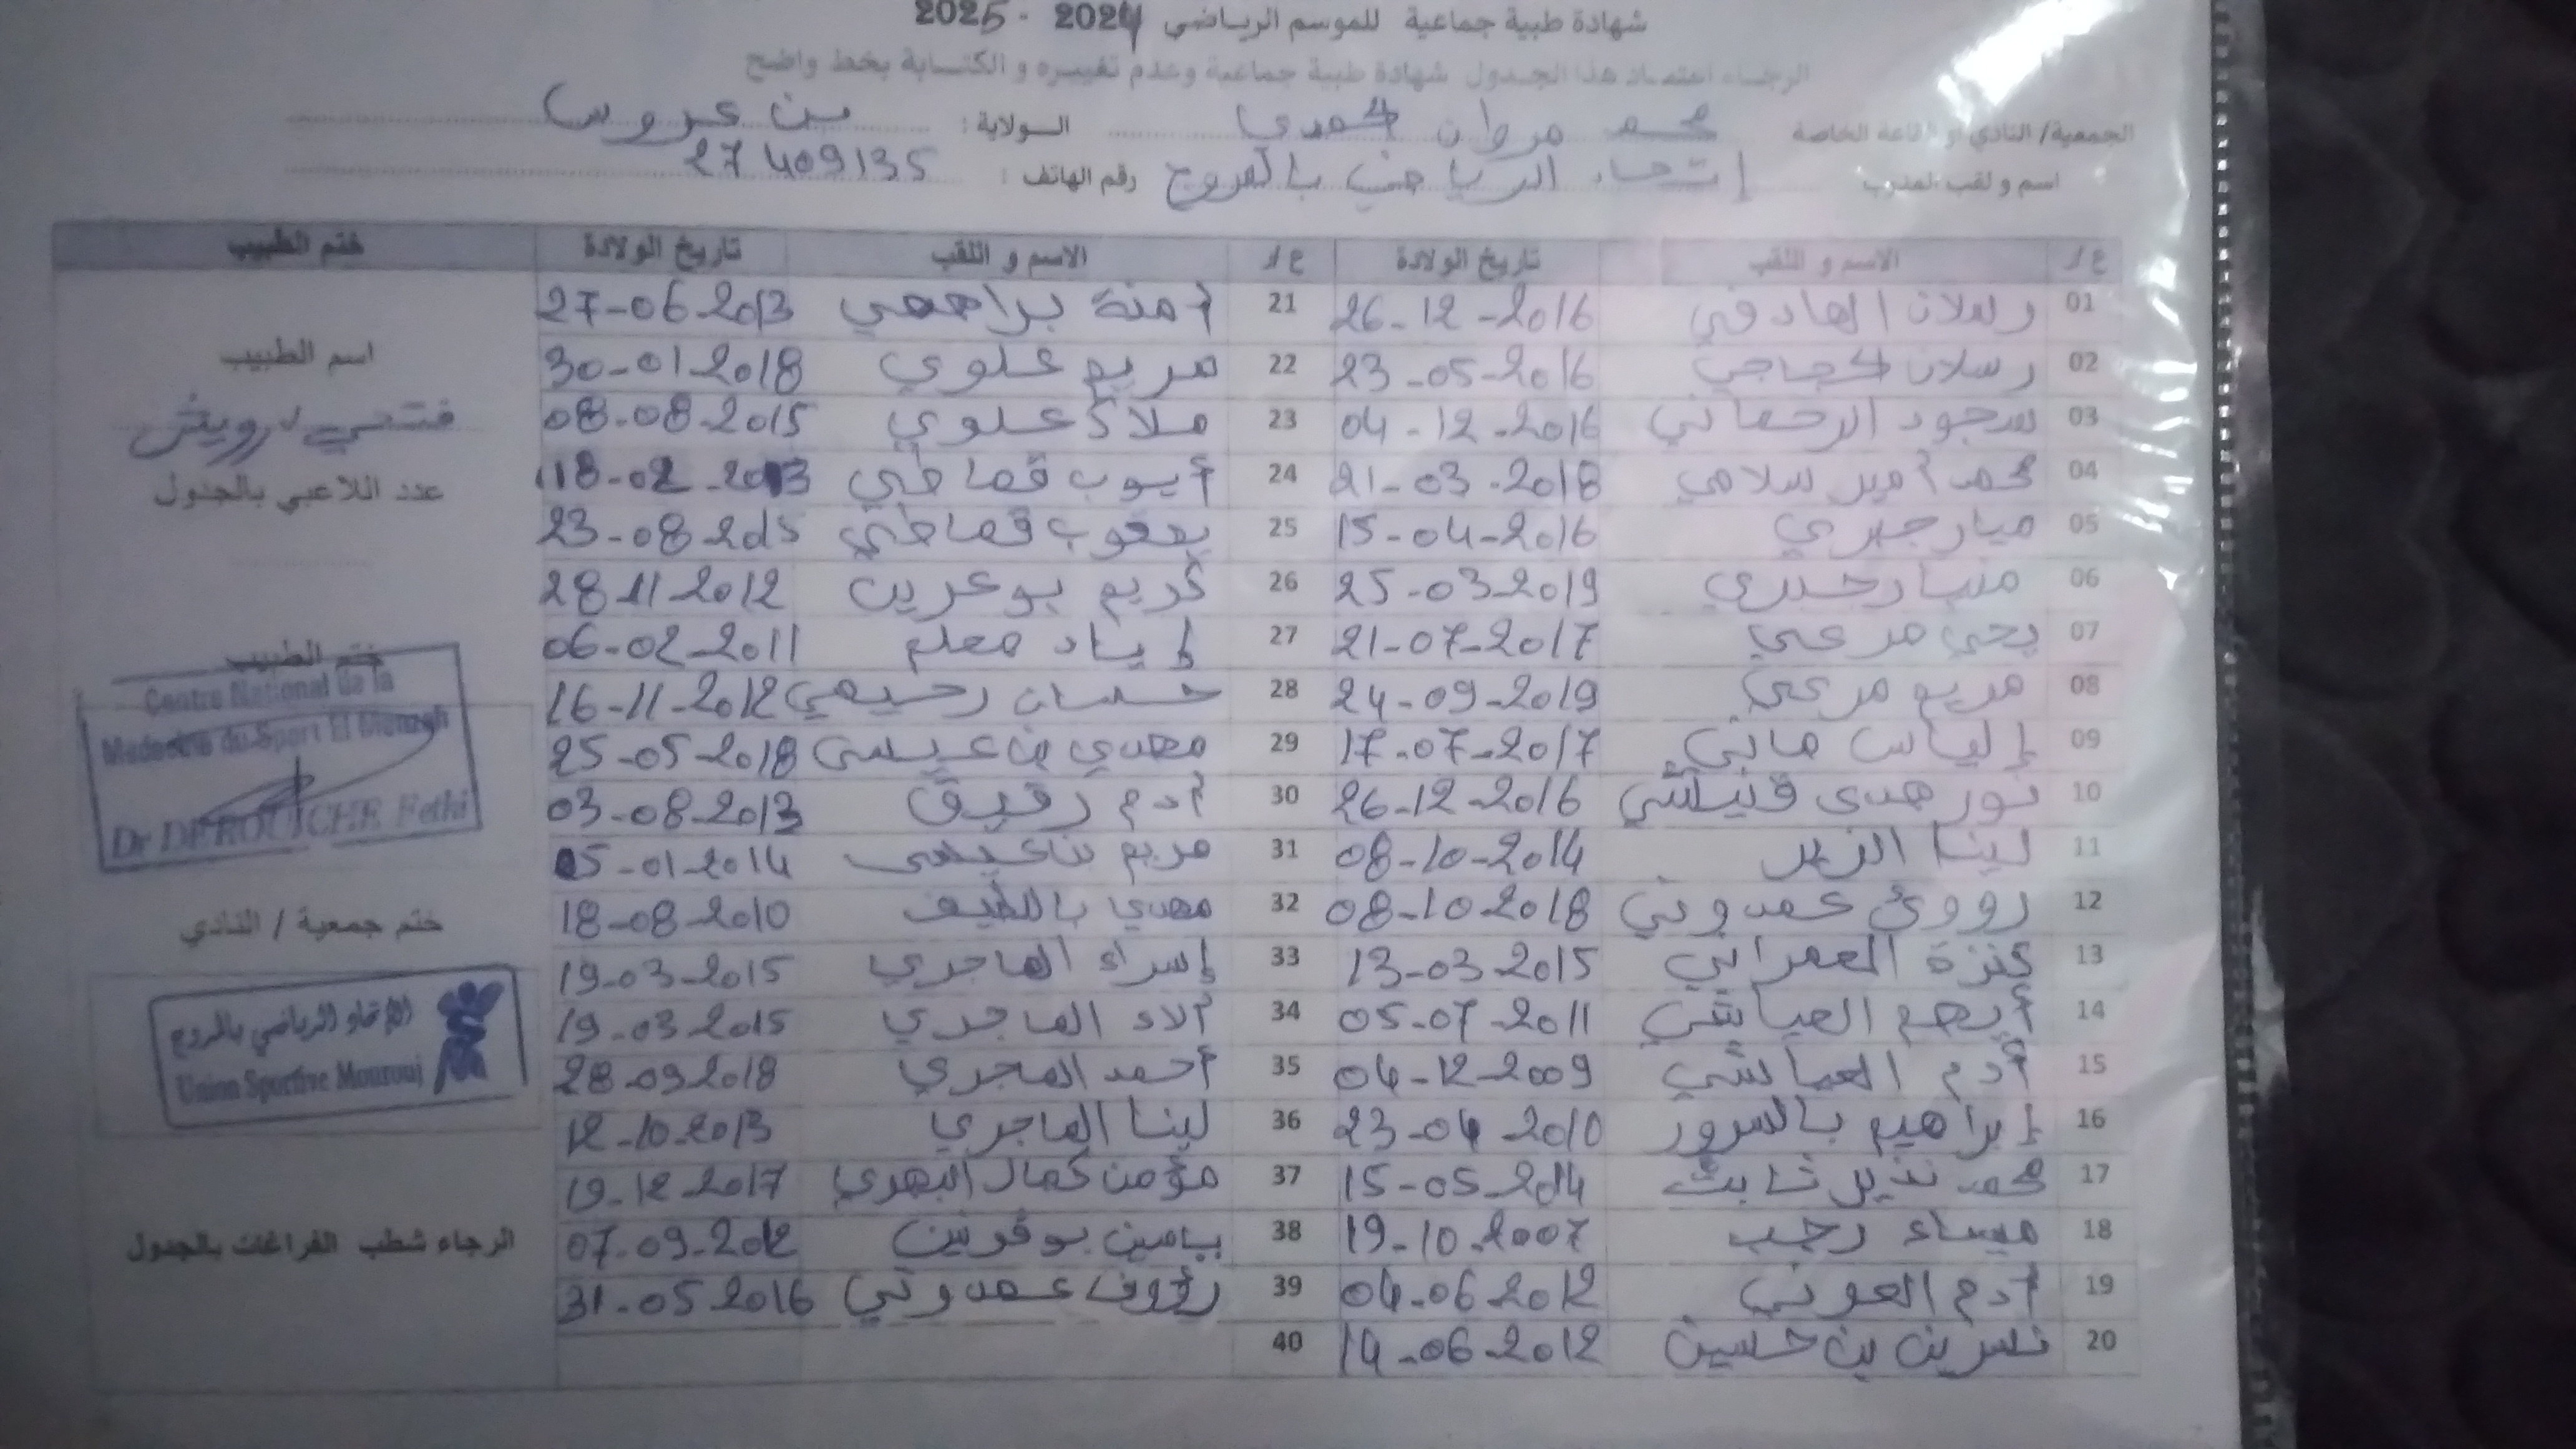 شهادة طبية جماعية للموسم الرياضي 2024 - 2025
الرجاء اعتماد هذا الجدول شهادة طبية جماعية وعدم تغييره و الكتابة بخط واضح
الجمعية/ النادي او القاعة الخاصة محمد مروان حمدي الولاية: بن عروس
اسم و لقب المدرب إتحاد الرياضي بالمروج رقم الهاتف: 27409135
ع/ر الاسم و اللقب تاريخ الولادة ع/ر الاسم و اللقب تاريخ الولادة ختم الطبيب
01 رسلان الصادقي 26-12-2016 21 آمنة براهمي 27-06-2013
02 رسلان حجاجي 23-05-2016 22 مريم علوي 30-01-2018
03 سجود الرحماني 04-12-2016 23 ملاك علوي 08-08-2015
04 محمد أمير سلامي 21-03-2018 24 أيوب قماطي 18-02-2013
05 ميار جبري 15-04-2016 25 يعقوب قماطي 23-08-2015
06 25-03-2019 26 كريم بوعرين 28-11-2012
07 يحي مرعي 21-07-2017 27 إياد معلم 06-02-2011
08 مريم مرعي 24-09-2019 28 حسان رحيمي 16-11-2012
09 إلياس ماني 17-07-2017 29 مهدي بن عيسى 25-05-2018
10 نور هدى 26-12-2016 30 آدم رقيق 03-08-2013
11 لينا 08-10-2014 31 مريم بن عيسى 05-01-2014
12 عمدوني 08-10-2018 32 مهدي باللطيف 18-08-2010
13 كنزة العمراني 13-03-2015 33 إسراء الماجري 19-03-2015
14 أيهم العياشي 05-07-2011 34 آلاء الماجري 19-03-2015
15 أدم العياشي 04-12-2009 35 أحمد الماجري 28-09-2018
16 إبراهيم بالسرور 23-04-2010 36 لينا الماجري 12-10-2013
17 محمد نذير ثابت 15-05-2014 37 مؤمن كمال 19-12-2017
18 ميساء رجب 19-10-2007 38 07-09-2012
19 آدم العوني 04-06-2012 39 رؤوف عمدوني 31-05-2016
20 نسرين بن حسين 14-06-2012 40
اسم الطبيب
فتحي درويش
عدد اللاعبي بالجدول
ختم الطبيب
Centre National de la
Medecine du Sport El Menzah
Dr DEROUICHE Fethi
ختم جمعية / النادي
الإتحاد الرياضي بالمروج
Union Sportive Mourouj
الرجاء شطب الفراغات بالجدول